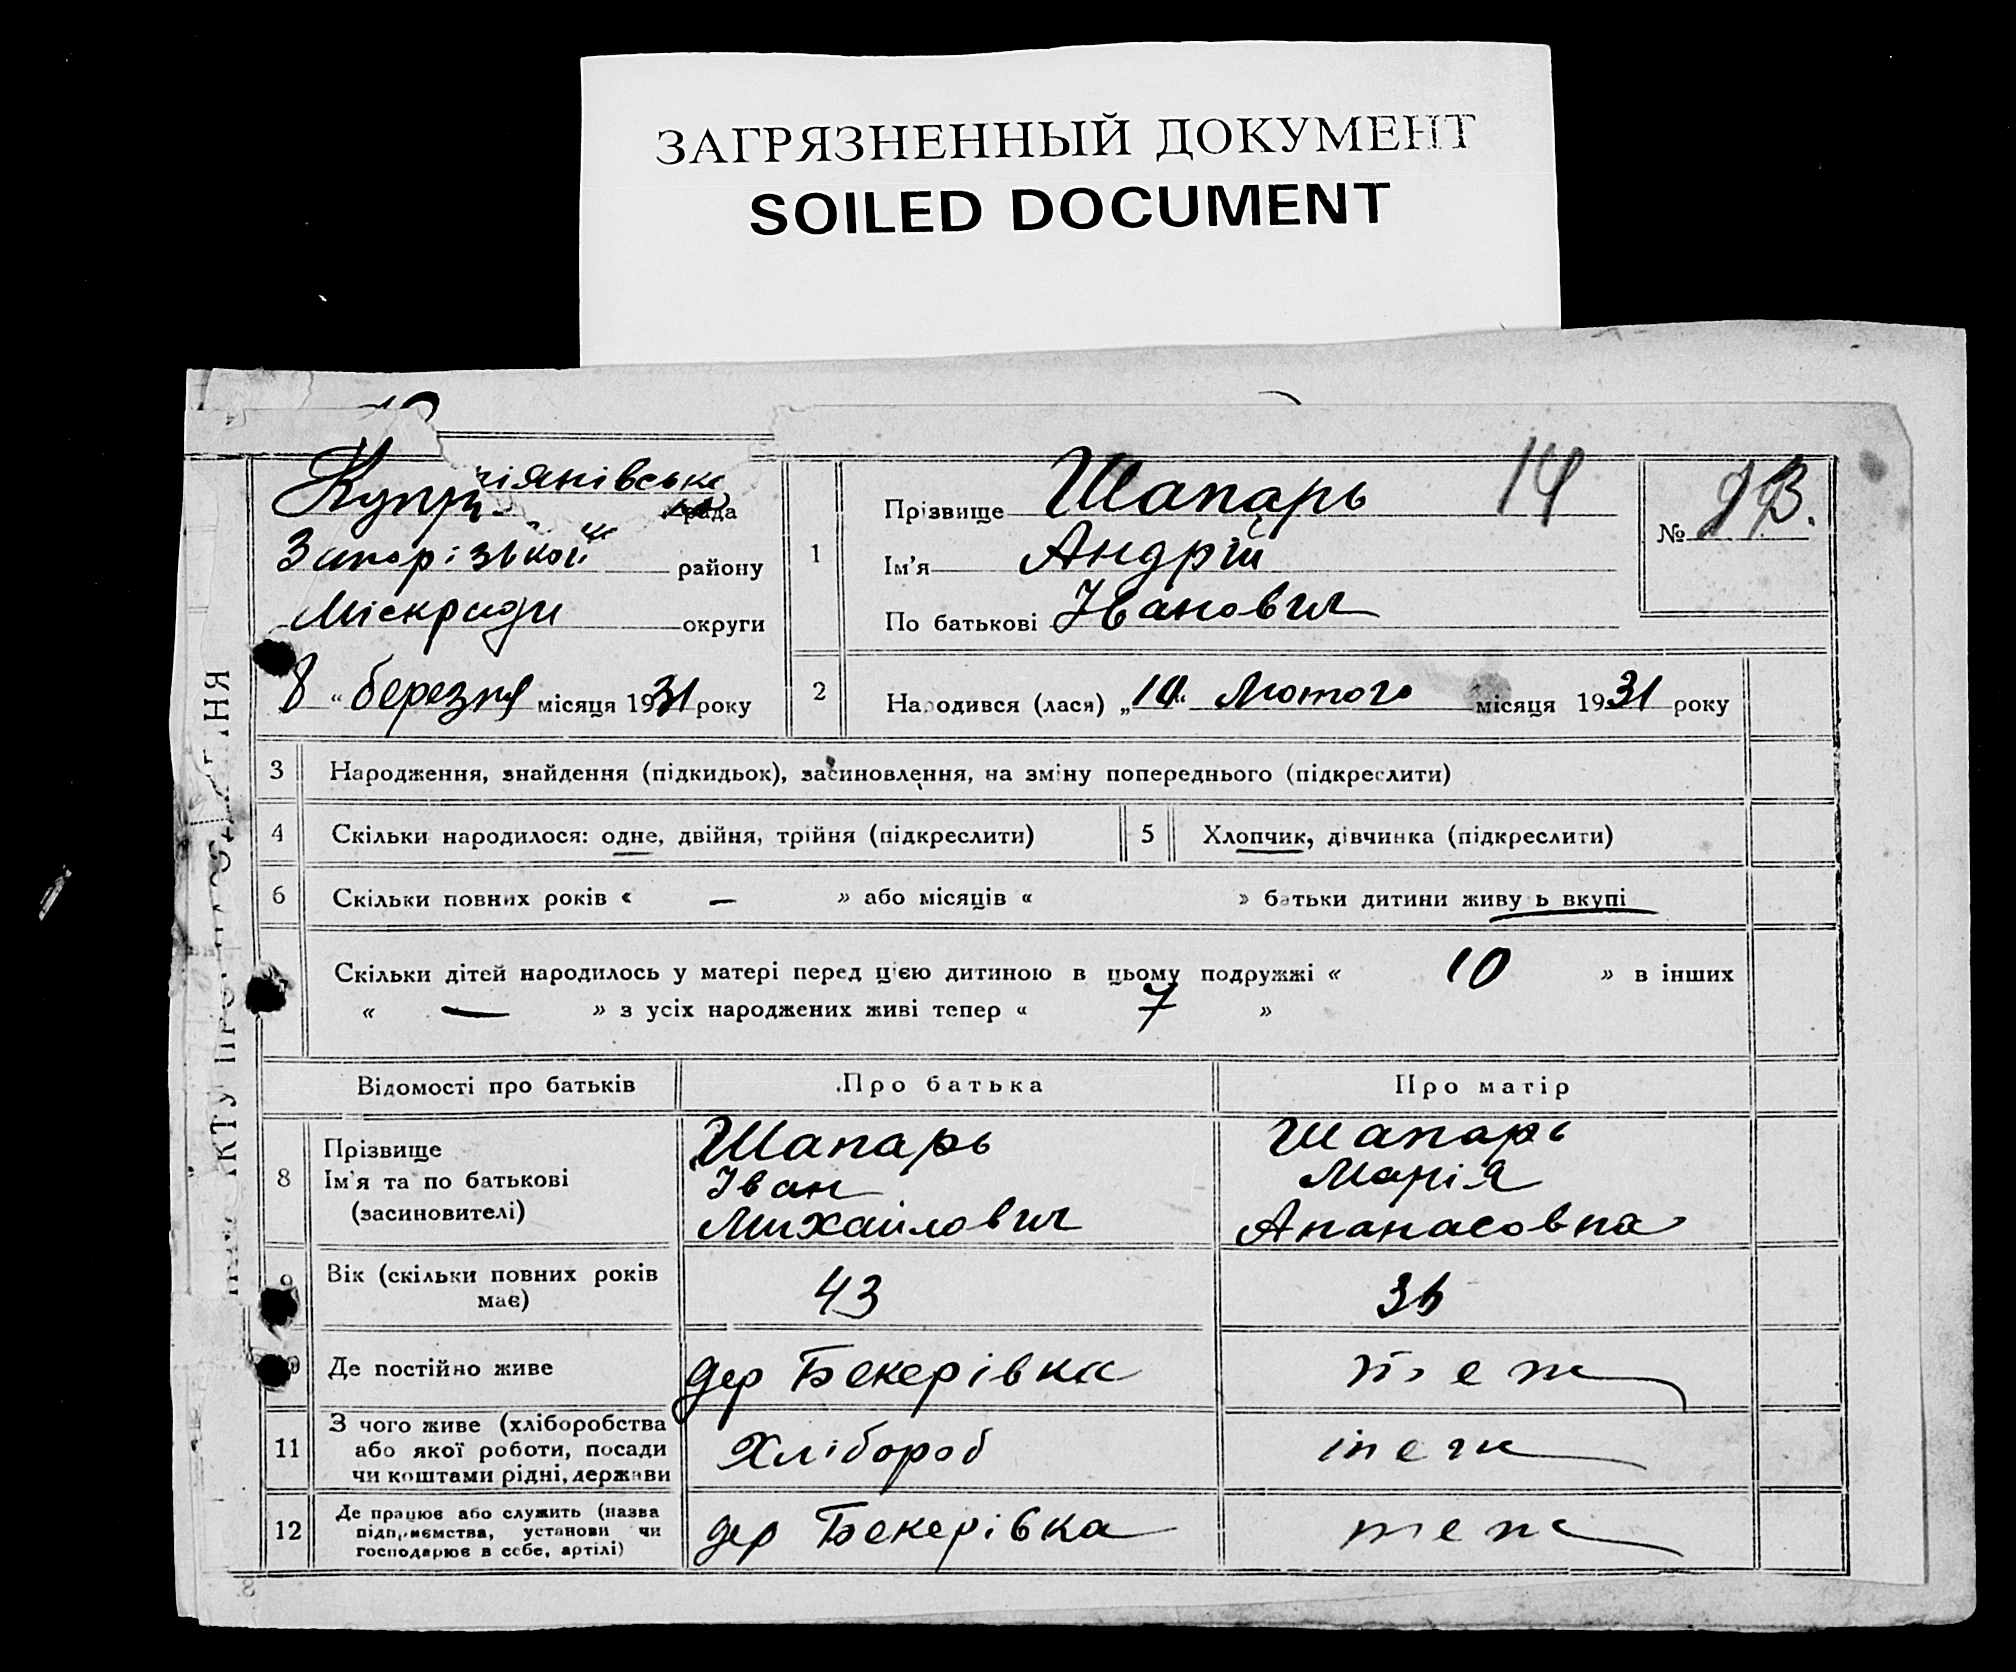 ЗАГРЯЗНЕННЫЙ ДОКУМЕНТ
SOILED DOCUMENT
рада
Запорізької району
Міськради округи
8 " березня місяця 1931 року
1
Прізвище Шапарь 14
Ім'я Андрій
По батькові Іванович
№
2
Народився (лася) „10“ Лютого місяця 1931 року
3 Народження, знайдення (підкидьок), засиновлення, на зміну попереднього (підкреслити)
4 Скільки народилося: одне, двійня, трійня (підкреслити) 5 Хлопчик, дівчинка (підкреслити)
6 Скільки повних років « — » або місяців « » батьки дитини живуть вкупі
Скільки дітей народилось у матері перед цією дитиною в цьому подружжі « 10 » в інших
« — » з усіх народжених живі тепер « 7 »
Відомості про батьків Про батька Про матір
8
Прізвище
Ім'я та по батькові
(засиновителі)
Шапарь
Іван
Михайлович
Шапарь
Марія
Апанасовна
9 Вік (скільки повних років
має)
43
36
Де постійно живе дер Бекерівка теж
11
З чого живе (хліборобства
або якої роботи, посади
чи коштами рідні, держави
Хлібороб теж
12
Де працює або служить (назва
підприємства, установи чи
господарює в себе, артілі)
дер Бекерівка теж